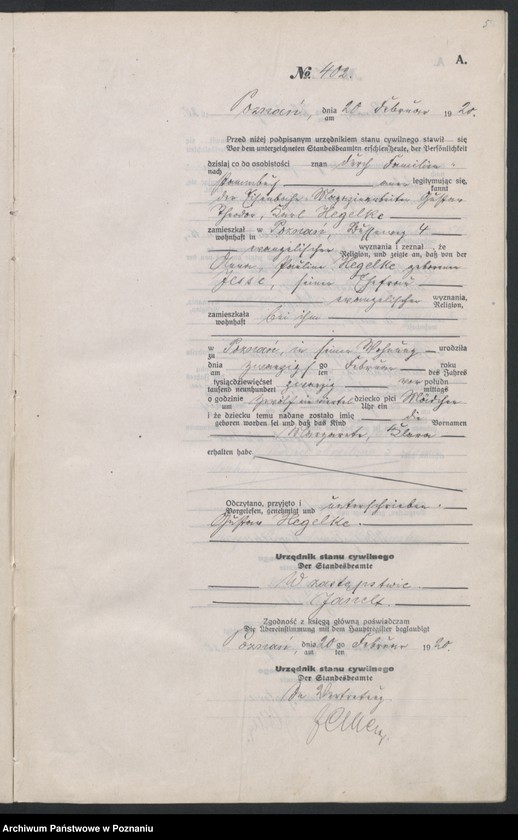 5
A.
No. 402.
Poznań, dnia 20 Februar 1920.
am
Przed niżej podpisanym urzędnikiem stanu cywilnego stawił się
Vor dem unterzeichneten Standesbeamten erschien heute, der Persönlichkeit
dzisiaj co do osobistości znan durch Familien-
nach
stammbuch aner legitymując się,
kannt
der Eisenbahn-Magazinarbeiter Gustav
Theodor, Karl Hegelke
zamieszkał w Poznań, 4
wohnhaft in
evangelischer wyznania i zeznał że
Religion, und zeigte an, daß von der
Pauline Hegelke geborene
Jesse, seiner Ehefrau
evangelischer wyznania,
Religion,
zamieszkała bei ihm
wohnhaft
w Poznań, in seiner Wohnung urodziła
zu
dnia zwanzig go Februar roku
am ten des Jahres
tysiącdziewięćset zwanzig vor połudn
tausend neunhundert mittags
o godzinie dziecko płci Mädchen
um Uhr ein
i że dziecku temu nadane zostało imię die
geboren worden sei und daß das Kind Vornamen
Margarete, Klara
erhalten habe
Odczytano, przyjęto i unterschrieben.
Vorgelesen, genehmigt und
Gustav Hegelke.
Urzędnik stanu cywilnego
Der Standesbeamte
W zastępstwie
Janelt.
Zgodność z księgą główną poświadczam
Die Übereinstimmung mit dem Hauptregister beglaubigt
Poznań, dnia 20 go Februar 1920.
am ten
Urzędnik stanu cywilnego
Der Standesbeamte
In Vertretung
Archiwum Państwowe w Poznaniu